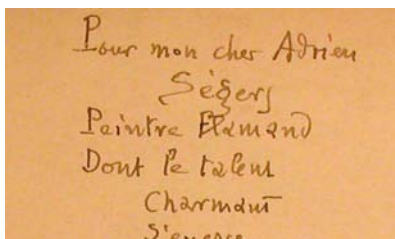 Pour mon cher Adrien
Ségers
Peintre Flamand
Dont le talent
Charmant
S'exerce